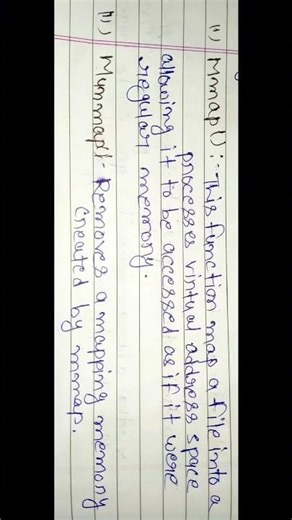 ii) Mmap():- This function map a file into a
processes virtual address space
allowing it to be accessed as if it were
regular memory.
iii) Mummap():- Removes a mapping memory
created by mmap.